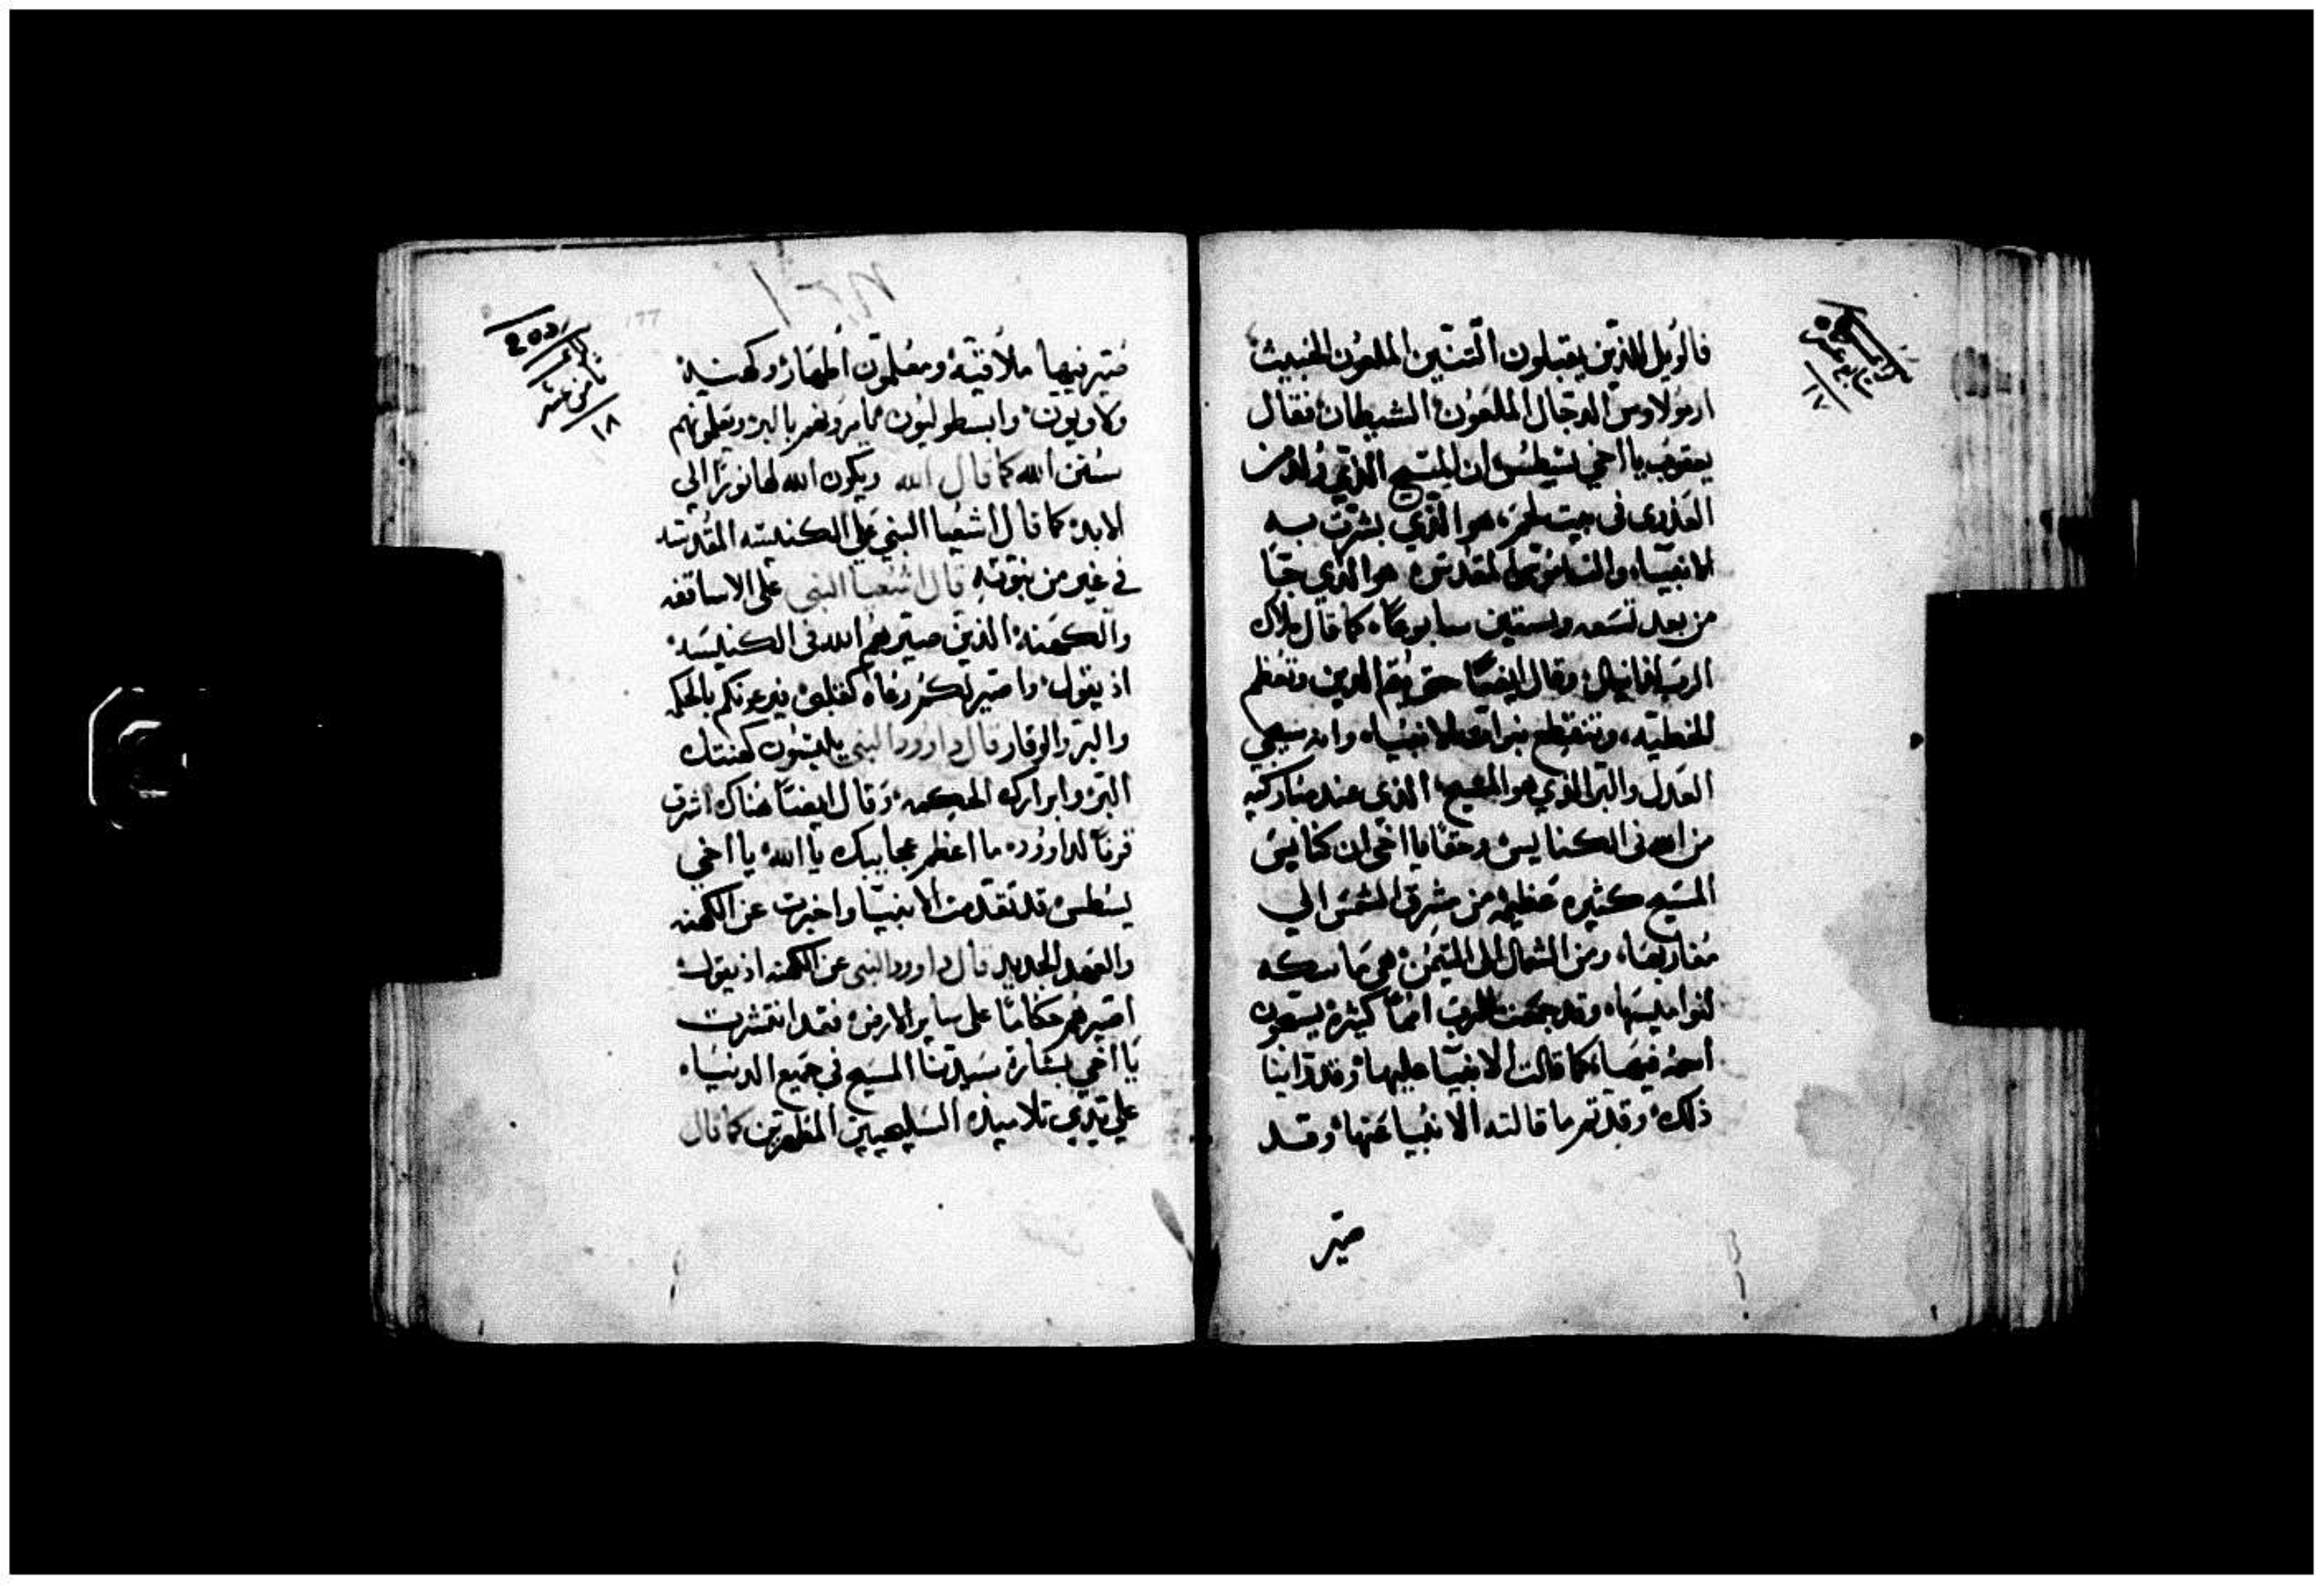 فالويل للذين يقبلون التنين الملعون الخبيث
ارمولاوس الدجال الملعون الشيطان فقال
يعقوب يا اخي يسطس ان المسيح الذي ولد من
العذرى في بيت لحم هو الذي بشرت به
الانبياء والناموس المقدس هو الذي جا
من بعد تسعه وستين سابوعا كما قال ملاك
الرب لدانيال وقال ايضا حتى يتم الدين وتعظم
الخطيه وتنقطع الانبياء وانه سيجي
العدل والبر الذي هو المسيح الذي عند مباركيه
من امه في الكنايس وحقا يا اخي ان كنايس
المسيح كثيره عظيمه من مشرق الشمس الي
مغاربها ومن الشمال الى التيمن هي ماسكه
لنواميسها وقد جمعت للرب امما كثيره يسبحون
اسمه فيها كما قالت الانبيا عليها وقد راينا
ذلك وقد تم ما قالته الانبيا عنها وقد
صير
صير فيها ملافنة ومعلمون اطهار وكهنة
ولاويون وابسطوليون يامرونهم بالبر ويعلمونهم
سنن الله كما قال الله ويكون الله لها نورا الي
الابد كما قال اشعيا النبي علي الكنيسه المقدسه
في غير من نبوته قال اشعيا النبي على الاساقفه
والكهنة الذين صيرهم الله في الكنيسة
اذ يقول واصير لكم رعاه كقلبي يرعونكم بالحكمه
والبر والوقار قال داوود النبي يلبسون كهنتك
البر وابرارك الحكمه وقال ايضا هناك اشرق
قرنا لداوود ما اعظم عجايبك يا الله يا اخي
يسطس قد تقدمت الانبيا واخبرت عن الكهنه
والعهد الجديد قال داوود النبي عن الكهنه اذ يقول
اصيرهم حكاما على ساير الارض فقد انتشرت
يا اخي بشارة سيدنا المسيح في جميع الدنيا
علي يدي تلاميذه السليحيين المطهرين كما قال